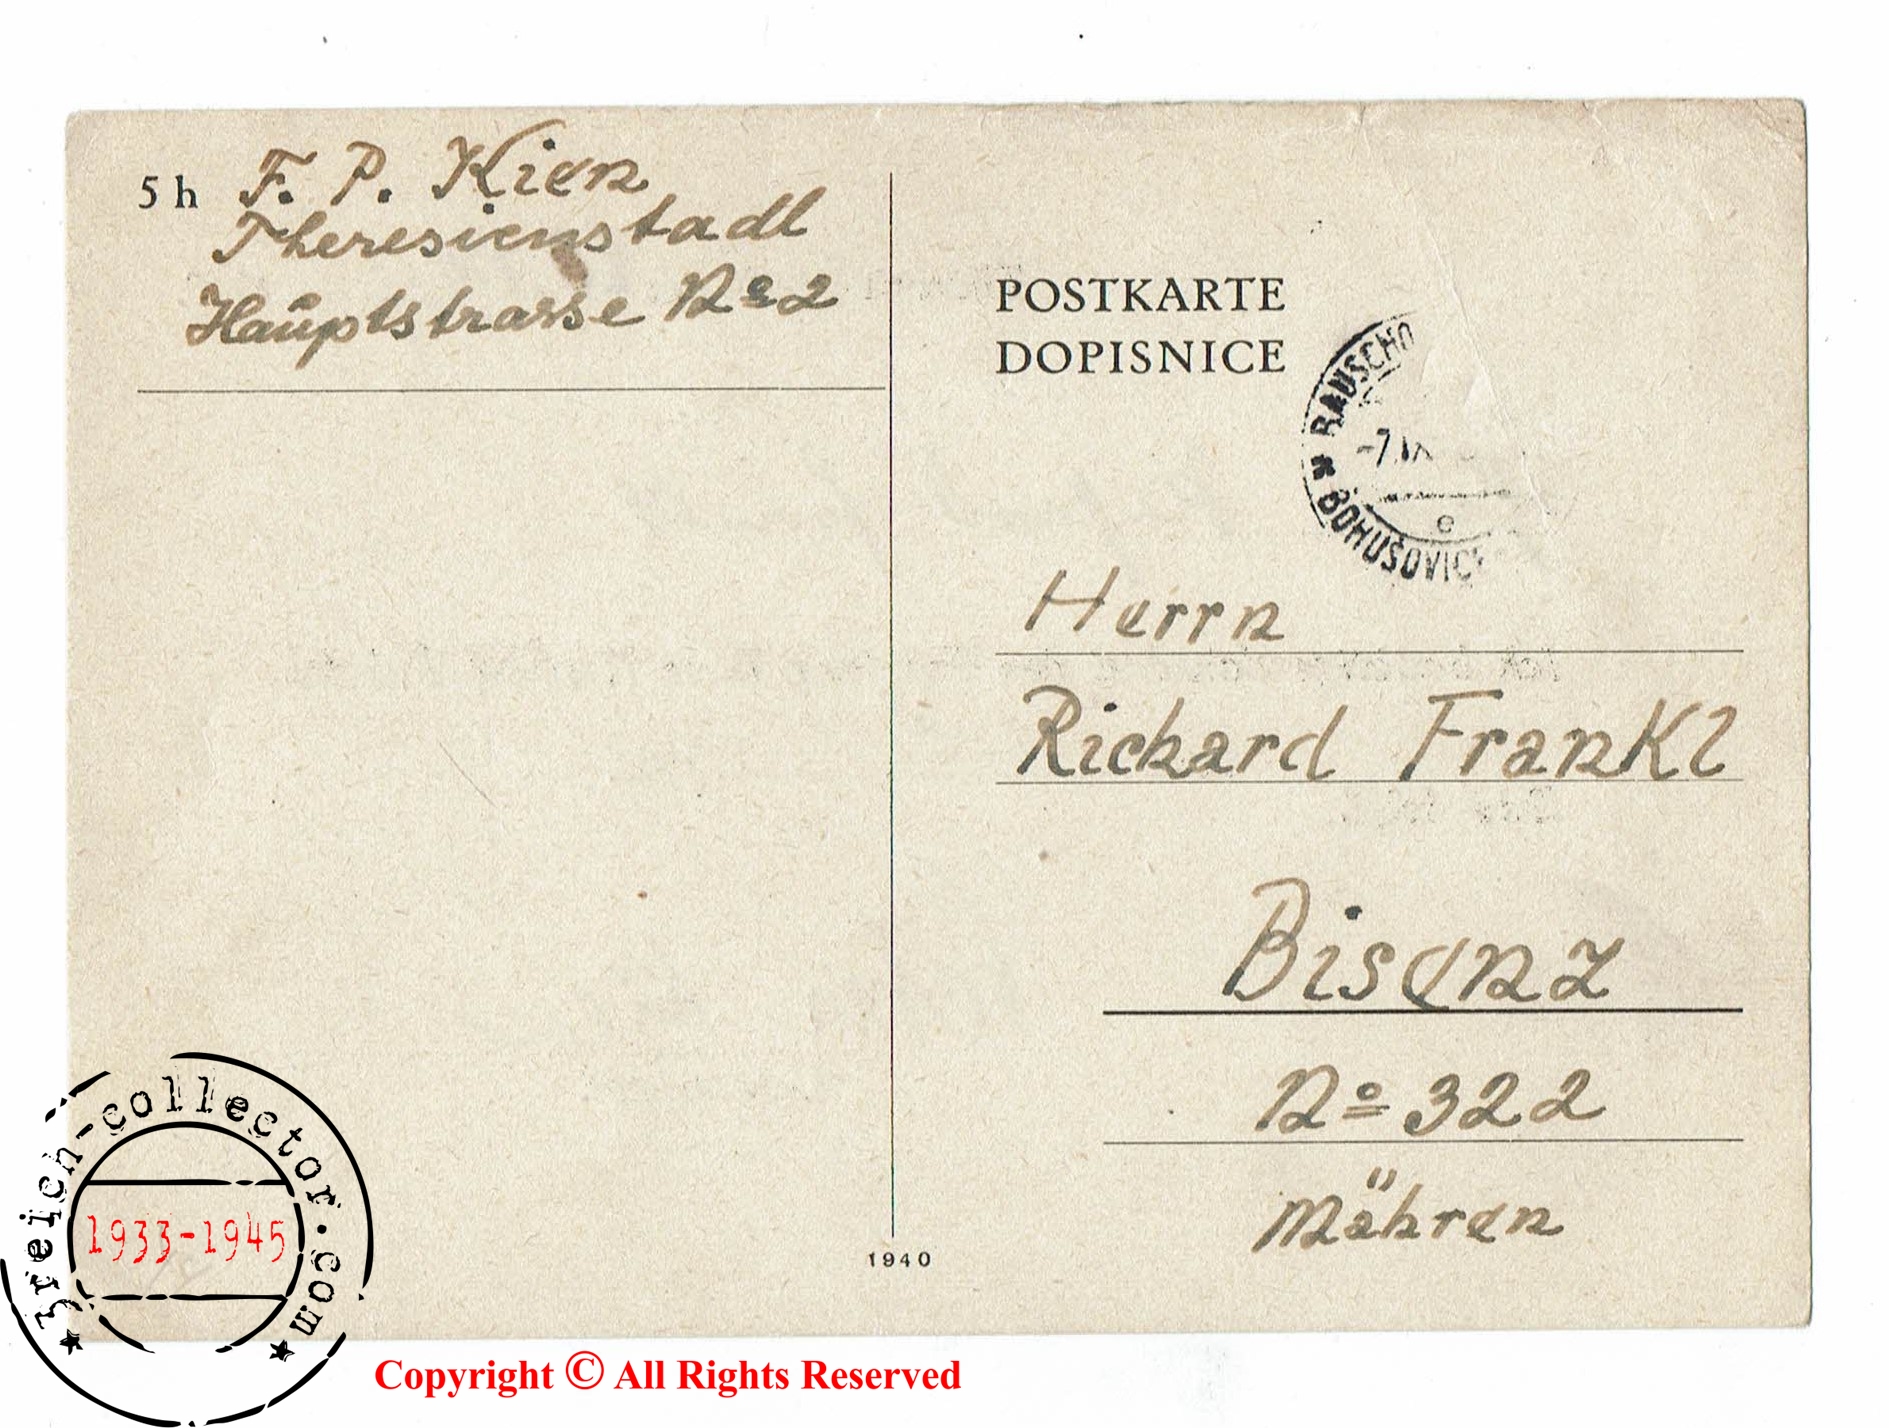 5 h F. P. Kien
Theresienstadt
Hauptstrasse No 2
POSTKARTE
DOPISNICE
* BAUSCHO
-7.IX
e
BOHUŠOVIC
Herrn
Richard Frankl
Bisenz
No 322
Mähren
1940
3reich-collector.com
1933-1945
Copyright © All Rights Reserved